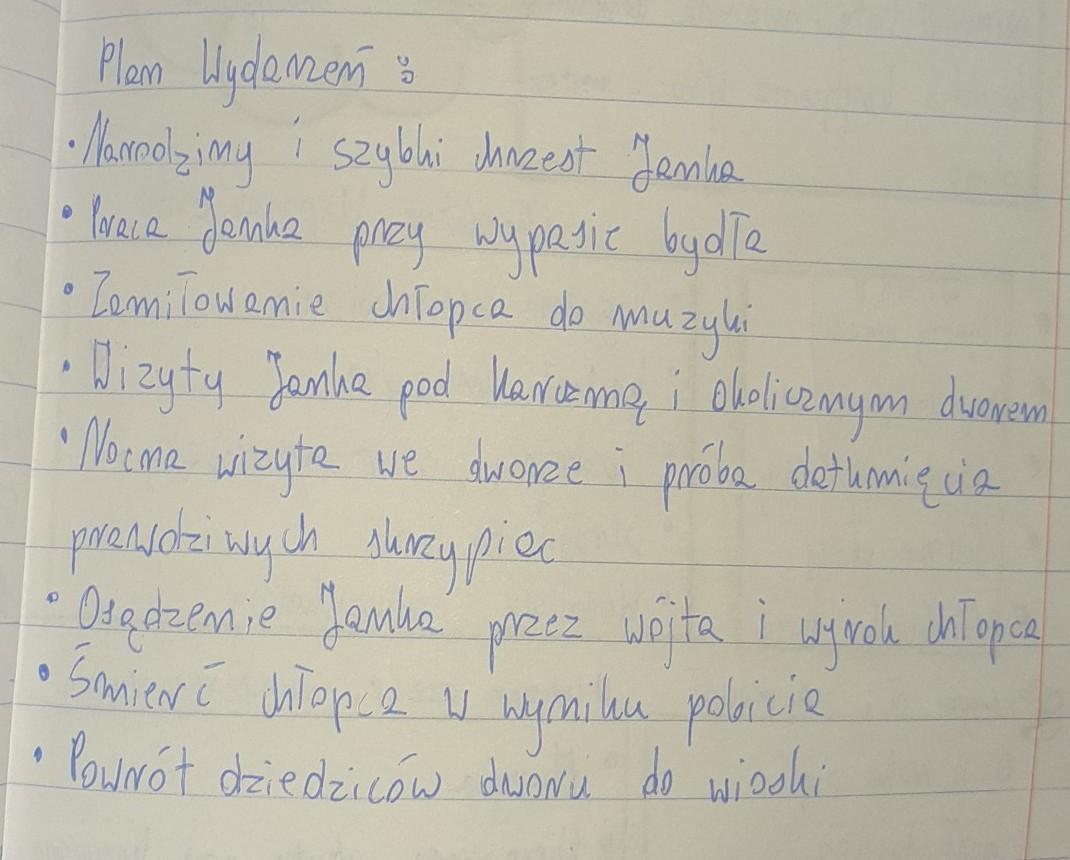 Plan Wydarzeń :
• Narodziny i szybki chrzest Janka
• Praca Janka przy wypasie bydła
• Zamiłowanie chłopca do muzyki
• Wizyty Janka pod karczmą i okolicznym dworem
• Nocna wizyta we dworze i próba dotknięcia
prawdziwych skrzypiec
• Osądzenie Janka przez wójta i wyrok chłopca
• Śmierć chłopca w wyniku pobicia
• Powrót dziedziców dworu do wioski